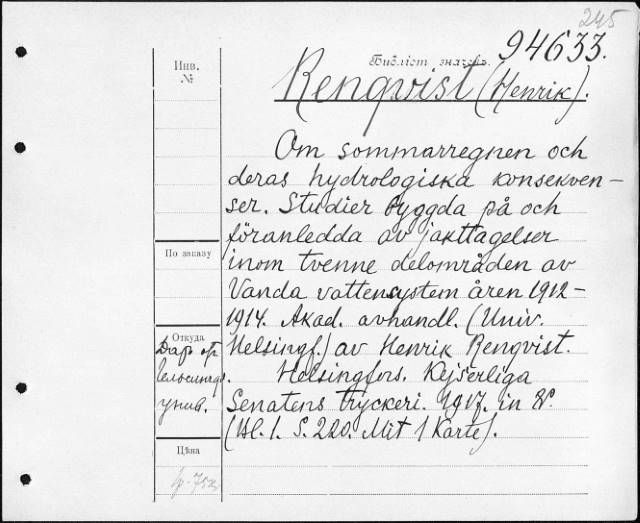 245
94633.
Инв.
№
Библіот. значекъ.
Renqvist (Henrik).
Om sommarregnen och
deras hydrologiska konsekven-
ser. Studier byggda på och
föranledda av jakttagelser
inom tvenne delområden av
Vanda vattensystem åren 1912-
1914. Akad. avhandl. (Univ.
Helsingf.) av Henrik Renqvist.
Helsingfors. Kejserliga
Senatens tryckeri. 1917. in 8º.
(Bl. 1. S. 220. Mit 1 Karte).
По заказу
Откуда
Даръ отъ
унив.
Цѣна